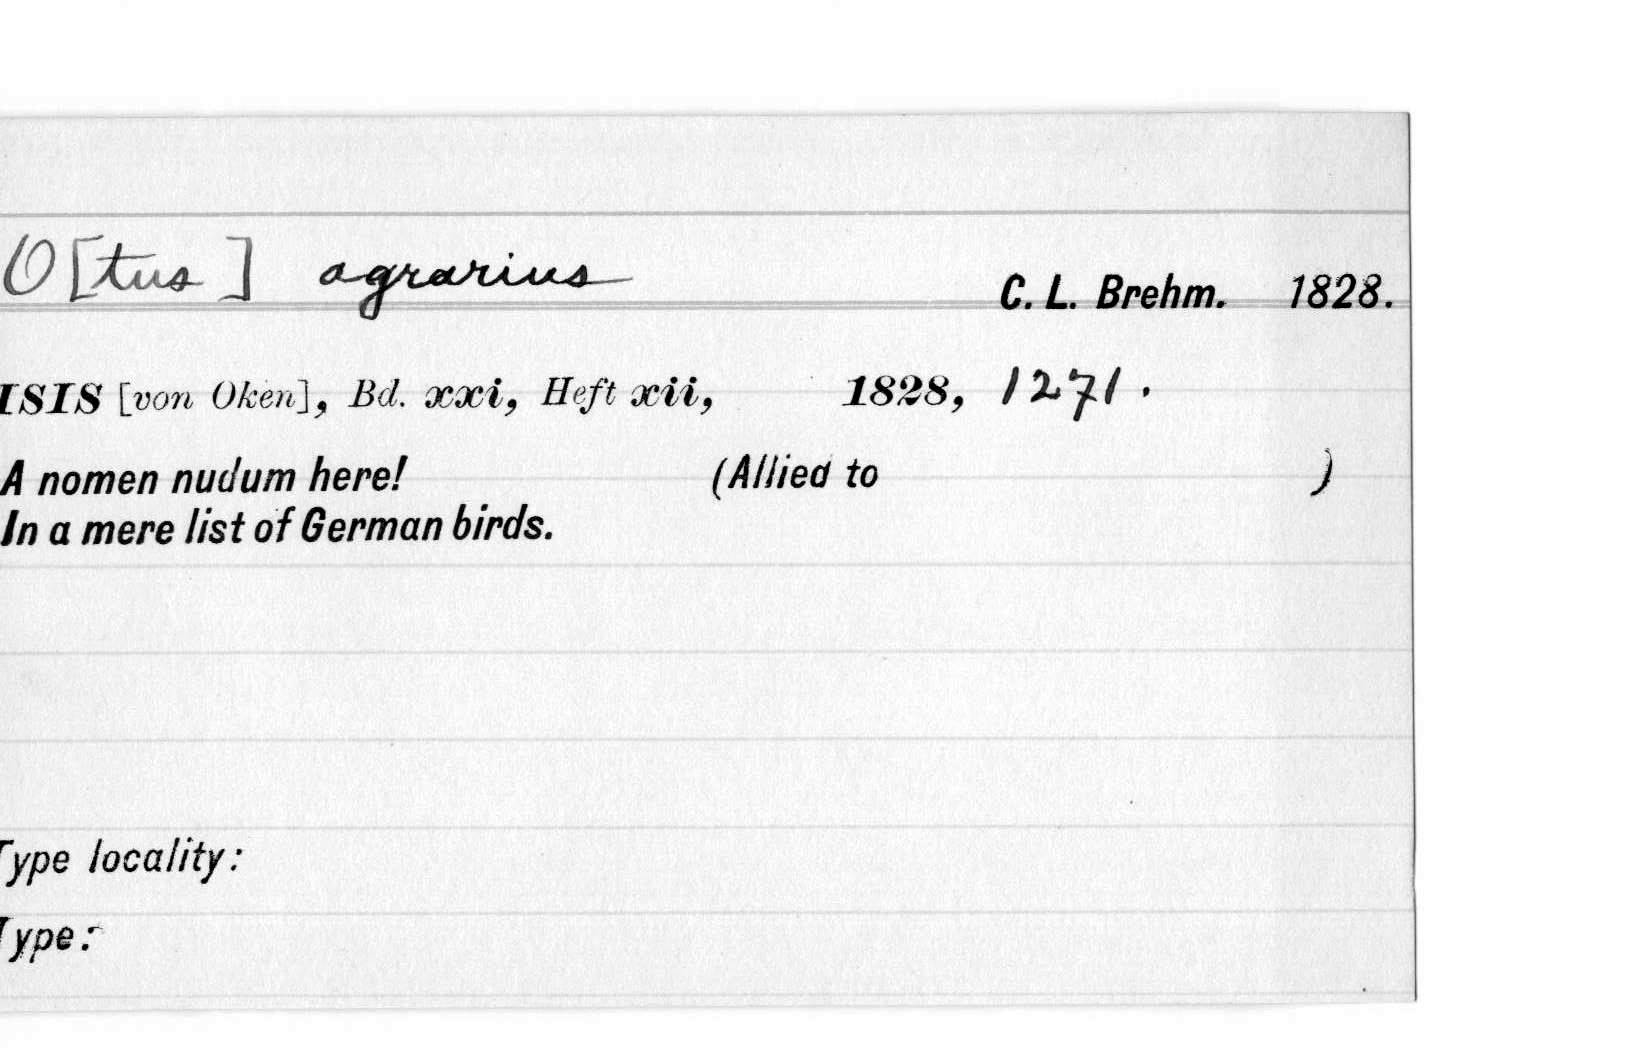 O[tus] agrarius C. L. Brehm. 1828.
ISIS [von Oken], Bd. xxi, Heft xii, 1828, 1271.
A nomen nudum here! (Allied to )
In a mere list of German birds.
Type locality:
Type: